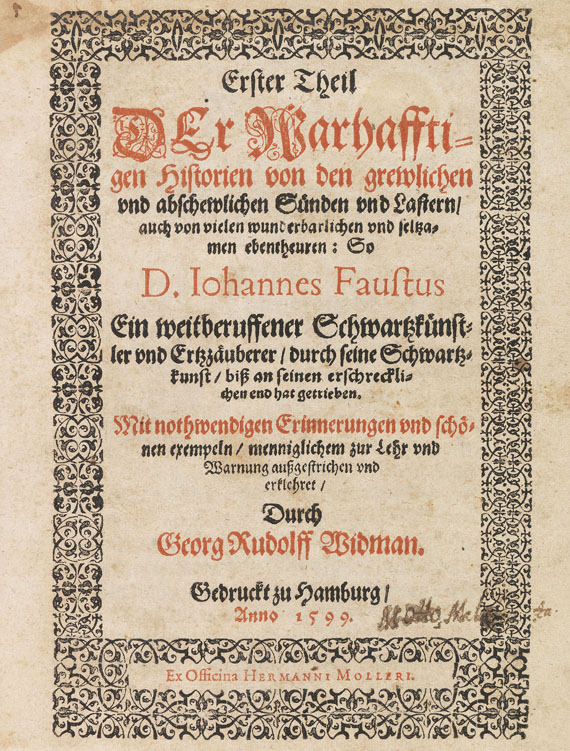 Erster Theil
DEr Warhaffti-
gen Historien von den grewlichen
vnd abschewlichen Sünden vnd Lastern/
auch von vielen wunderbarlichen vnd seltza-
men ebentheuren: So
D. Iohannes Faustus
Ein weitberuffener Schwartzkünst-
ler vnd Ertzzäuberer/ durch seine Schwartz-
kunst/ biß an seinen erschreckli-
chen end hat getrieben.
Mit nothwendigen Erinnerungen vnd schö-
nen exempeln/ menniglichem zur Lehr vnd
Warnung außgestrichen vnd
erklehret/
Durch
Georg Rudolff Widman.
Gedruckt zu Hamburg/
Anno 1599.
Ex Officina HERMANNI MOLLERI.